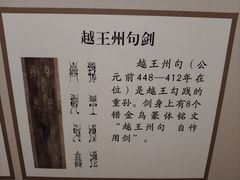 越王州句剑
越王州句（公
元前448—412年在
位）是越王勾践的
重孙。剑身上有8个
错金鸟篆体铭文
“越王州句 自作
用剑”。